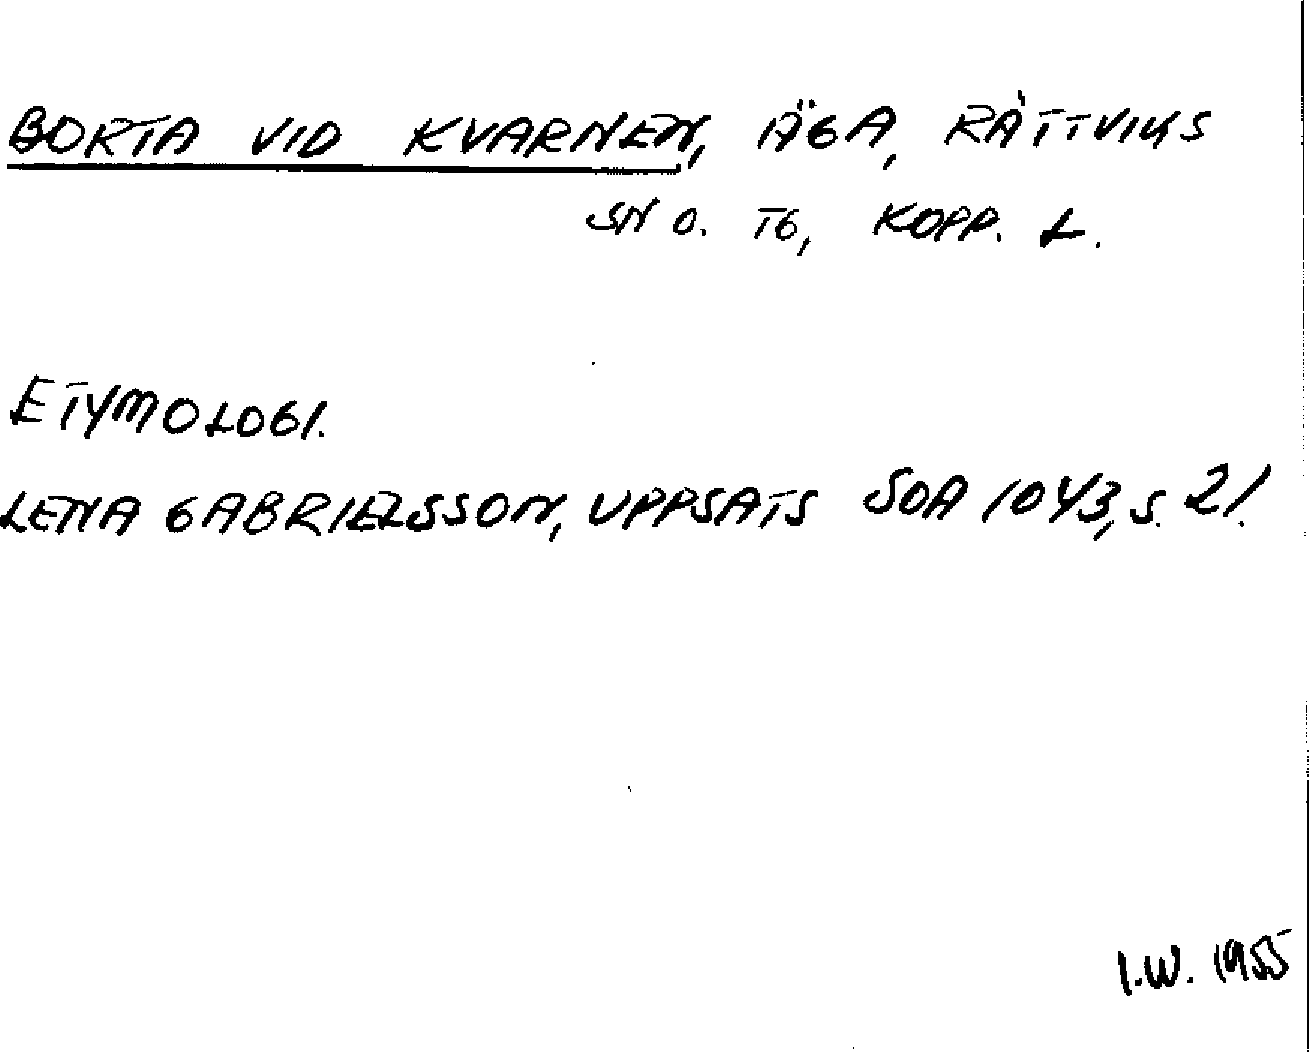 BORTA VID KVARNEN, ÄGA, RÄTTVIKS
SN O. TG, KOPP. L.
ETYMOLOGI.
LENA GABRIELSSON, UPPSATS SOA 1043, S. 21.
I.W. 1955